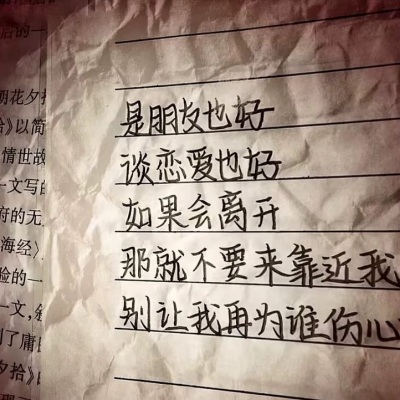 后的一
朝花夕拾
拾》以简
情世故
一文写的
府的无
海经》
验的一
一文，
到了庸
夕拾》
是朋友也好
谈恋爱也好
如果会离开
那就不要来靠近我
别让我再为谁伤心